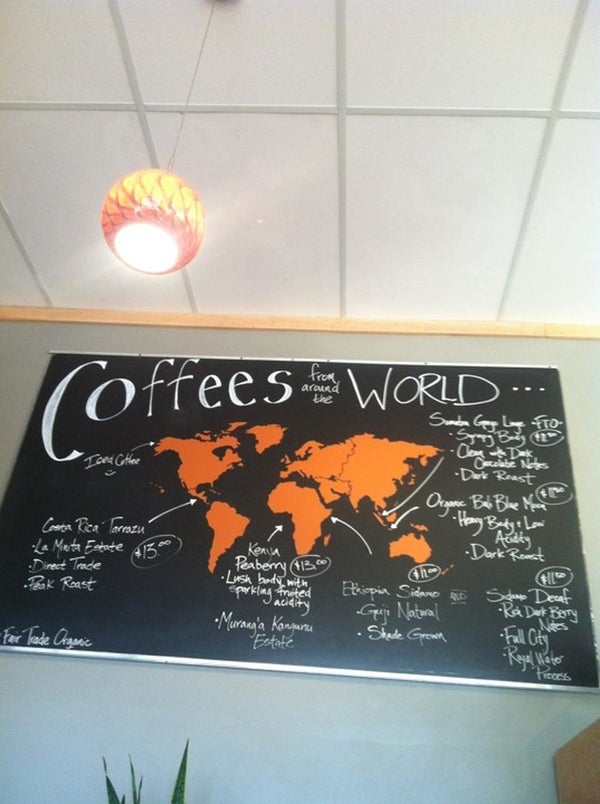 Coffees from around the WORLD ...
Iced Coffee
Costa Rica Tarrazu
· La Minita Estate
· Direct Trade
· Peak Roast
$13.00
Fair Trade Organic
Kenya
Peaberry $13.00
· Lush body with
sparkling fruited
acidity
· Murang'a Kangunu
Estate
$11.00
Ethiopia Sidamo AND
· Guji Natural
· Shade Grown
Sumatra Gayo -FTO-
· Syrupy Body
· Clean with Dark
Chocolate Notes
· Dark Roast
Organic Bali Blue Moon
· Heavy Body · Low
Acidity
· Dark Roast
$11.00
Sidamo Decaf
· Rich Dark Berry
Notes
· Full City
· Royal Water
Process